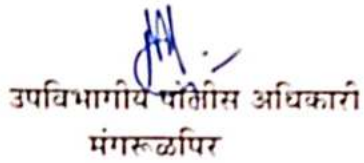 उपविभागीय पोलीस अधिकारी
मंगरूळपिर